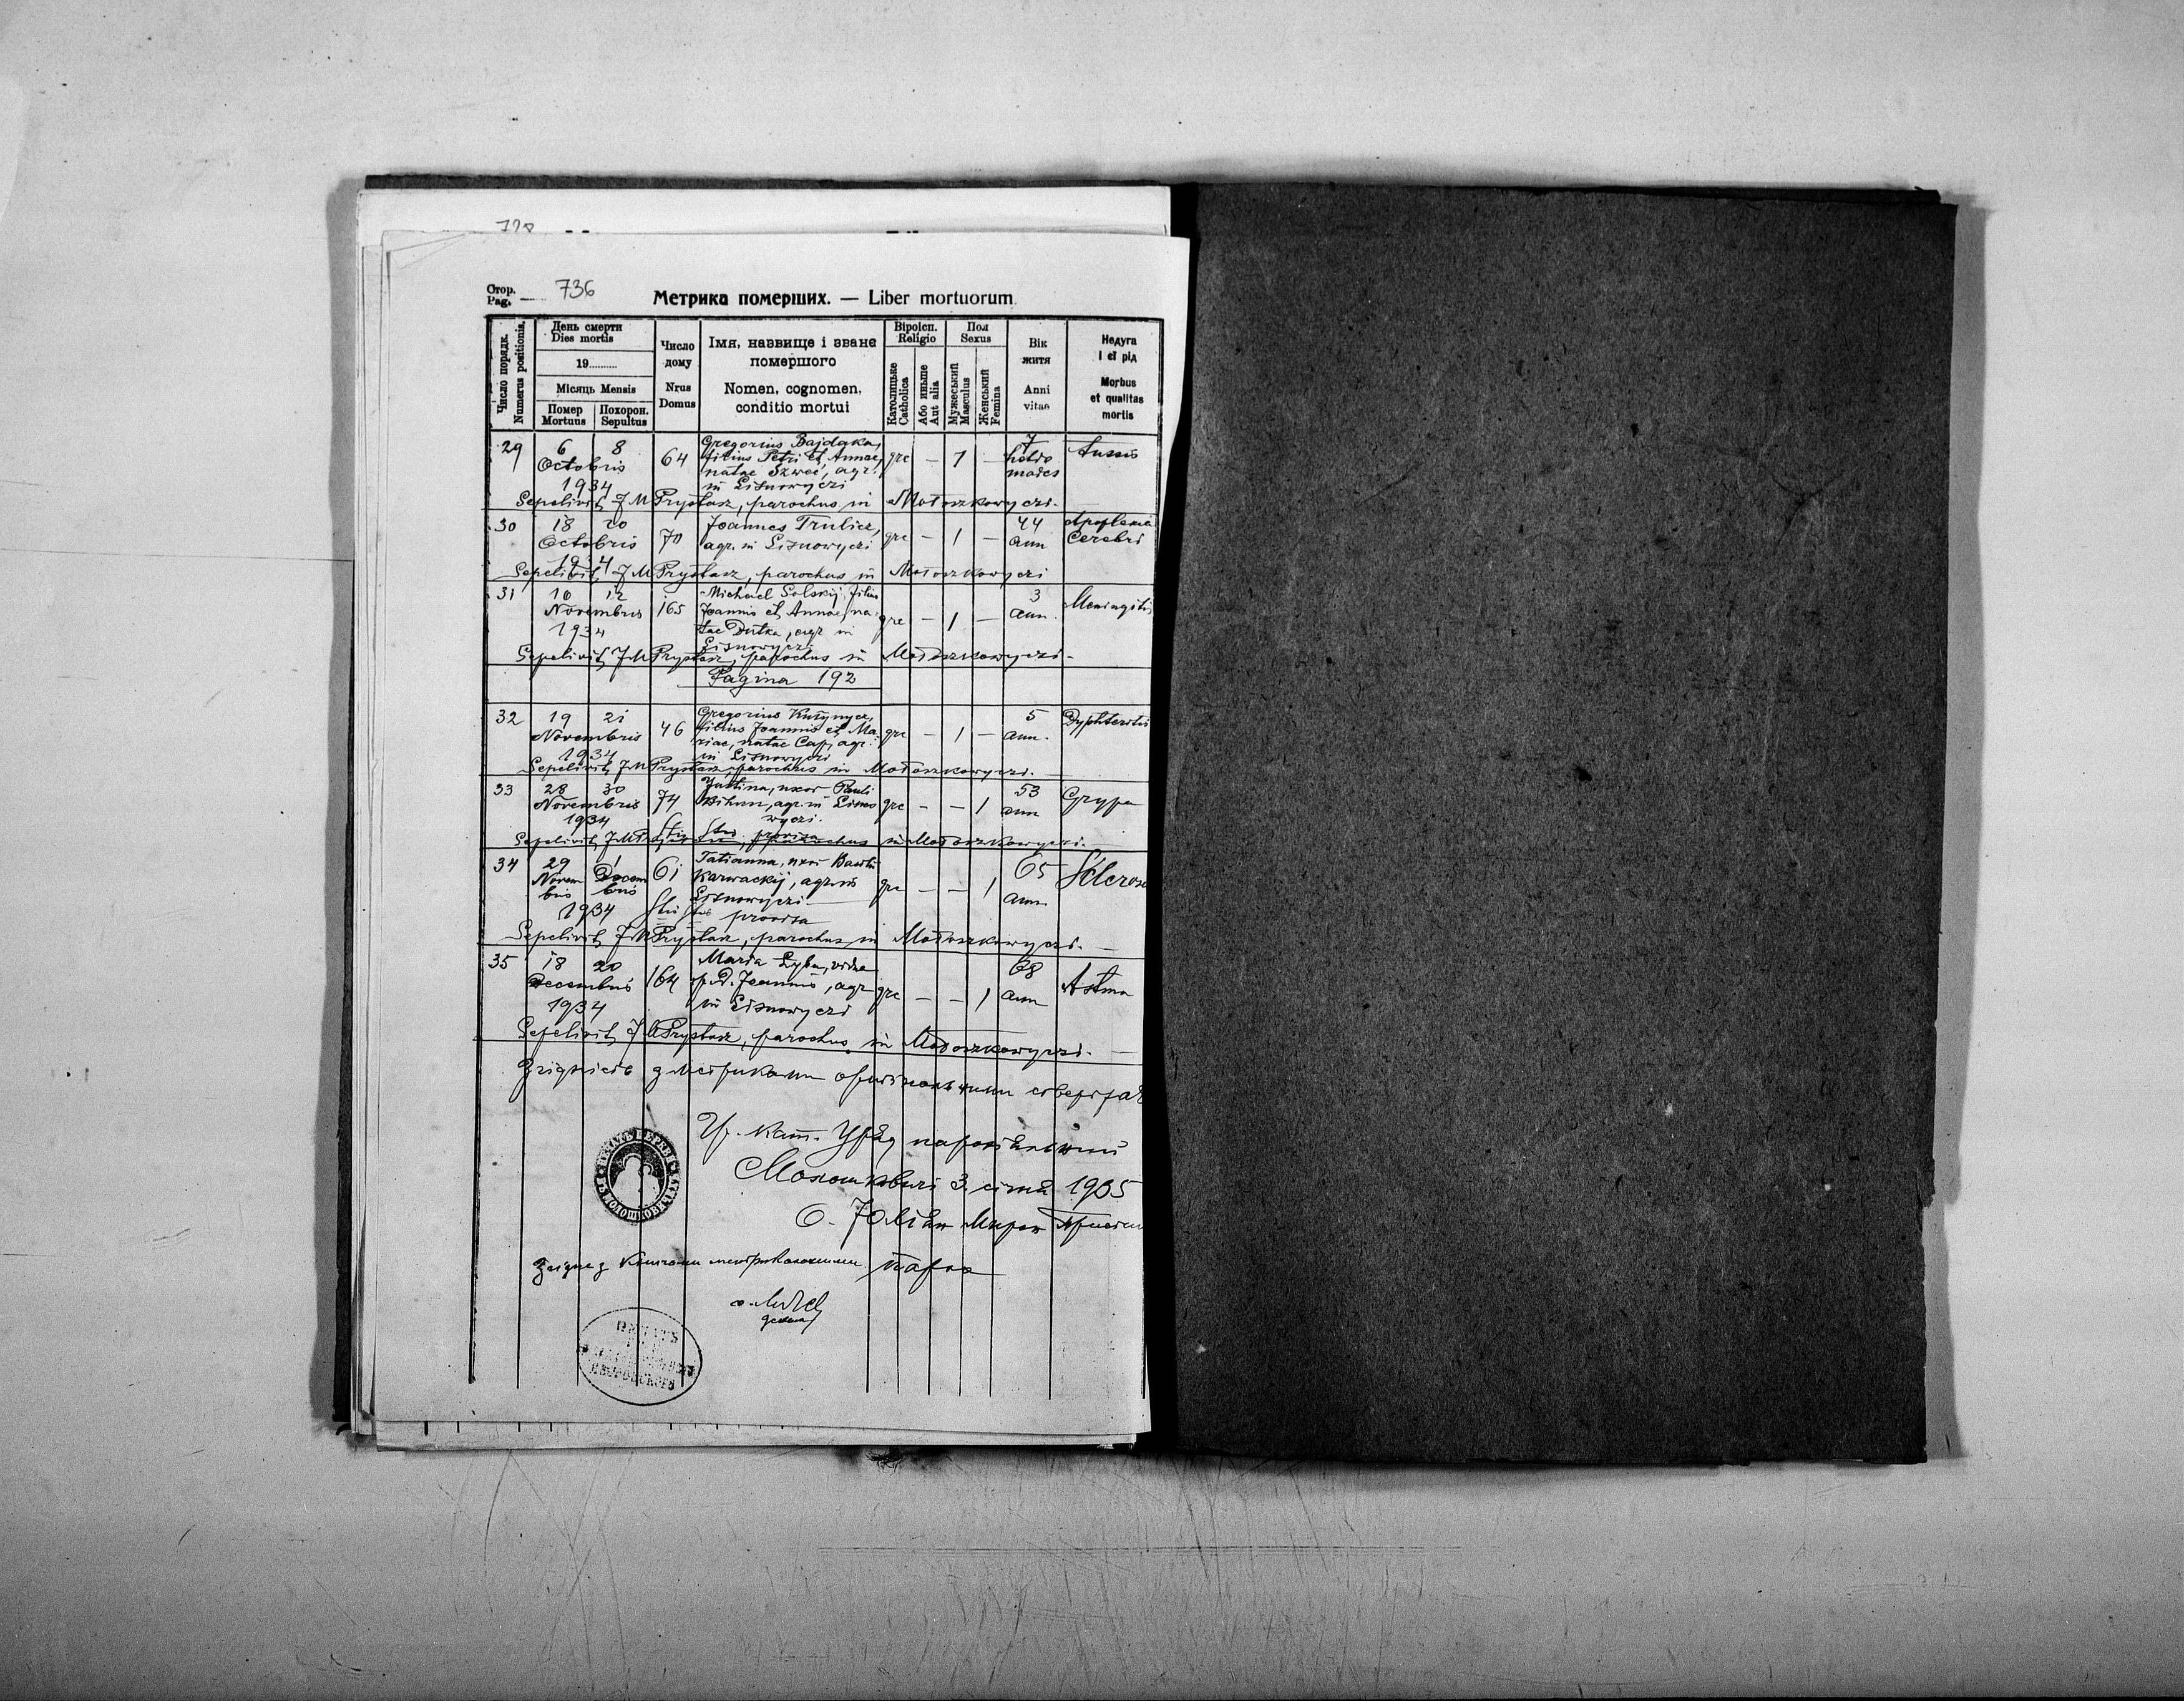 728
Стор.
Pag. — 736
Метрика померших. — Liber mortuorum.
Число порядк.
Numerus positionis.
День смерти
Dies mortis
19
Місяць Mensis
Помер
Mortuus
Похорон.
Sepultus
Число
дому
Nrus
Domus
Імя, назвище і званє
помершого
Nomen, cognomen,
conditio mortui
Віроісп.
Religio
Католицьке
Catholica
Або иньше
Aut alia
Пол
Sexus
Мужеський
Masculus
Женський
Femina
Вік
житя
Anni
vitae
Недуга
і єї рід
Morbus
et qualitas
mortis
29 6 8 Octobris 1934 64
Gregorius Bajdaka,
filius Petri et Annae,
natae Szweć, agr.
in Lisnowyczi
grc — 1 — 7 hebdomades Tussis
Sepelivit J M Prystasz, parochus in Mołoszkowyczi.
30 18 20 Octobris 1934 70
Joannes Trulicz,
agr. in Lisnowyczi
grc — 1 — 44 ann Apoplexia Cerebri
Sepelivit J M Prystasz, parochus in Mołoszkowyczi
31 10 12 Novembris 1934 165
Michael Solskij, filius
Joannis et Annae, na-
tae Dutka, agr in
Lisnowyczi
grc — 1 — 3 ann. Meningitis
Sepelivit J M Prystasz, parochus in Mołoszkowyczi-
Pagina 192
32 19 21 Novembris 1934 46
Gregorius
filius Joannis et Ma-
riae, natae Cap, agr.
in Lisnowyczi
grc — 1 — 5 ann. Dyphteritis
Sepelivit J M Prystasz, parochus in Mołoszkowyczi.
33 28 30 Novembris 1934 74
Justina, uxor Pauli
Bihun, agr. in Lisno
wyczi.
provisa
grc — — 1 53 ann Grypa
Sepelivit J M parochus in Mołoszkowyczi.
34 29 Novem bris 1 Decem bris 1934 61
Tatianna, uxor
Karwackij, agr. in
Lisnowyczi
provisa
grc — — 1 65 ann. Scleros
Sepelivit J M Prystasz, parochus in Mołoszkowyczi.
35 18 20 Decembris 1934 164
Maria Zyba, vidua
p. d. Joannis, agr
in Lisnowyczi
grc — — 1 68 ann Astma
Sepelivit J M Prystasz, parochus in Mołoszkowyczi.
Згідність з метриками оригінальними стверджає
Гр. кат. Уряд парохіяльний
Молошковичі 3. січня 1935
О. Юліян Мирон
парох
Згідне з книгами метрикальними
декан